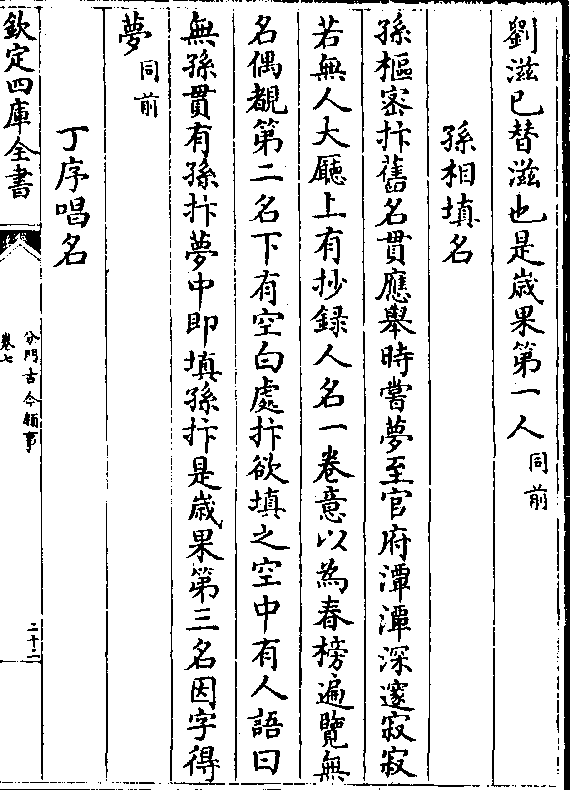 劉滋已替滋也是歲果第一人同前
孫相填名
孫樞密抃舊名貫應舉時嘗夢至官府潭潭深邃寂寂
若無人大廳上有抄録人名一卷意以為春榜遍覽無
名偶覩第二名下有空白處抃欲填之空中有人語曰
無孫貫有孫抃夢中即填孫抃是歲果第三名因字得
夢同前
丁序唱名
欽定四庫全書
分門古今類事
卷七
二十二